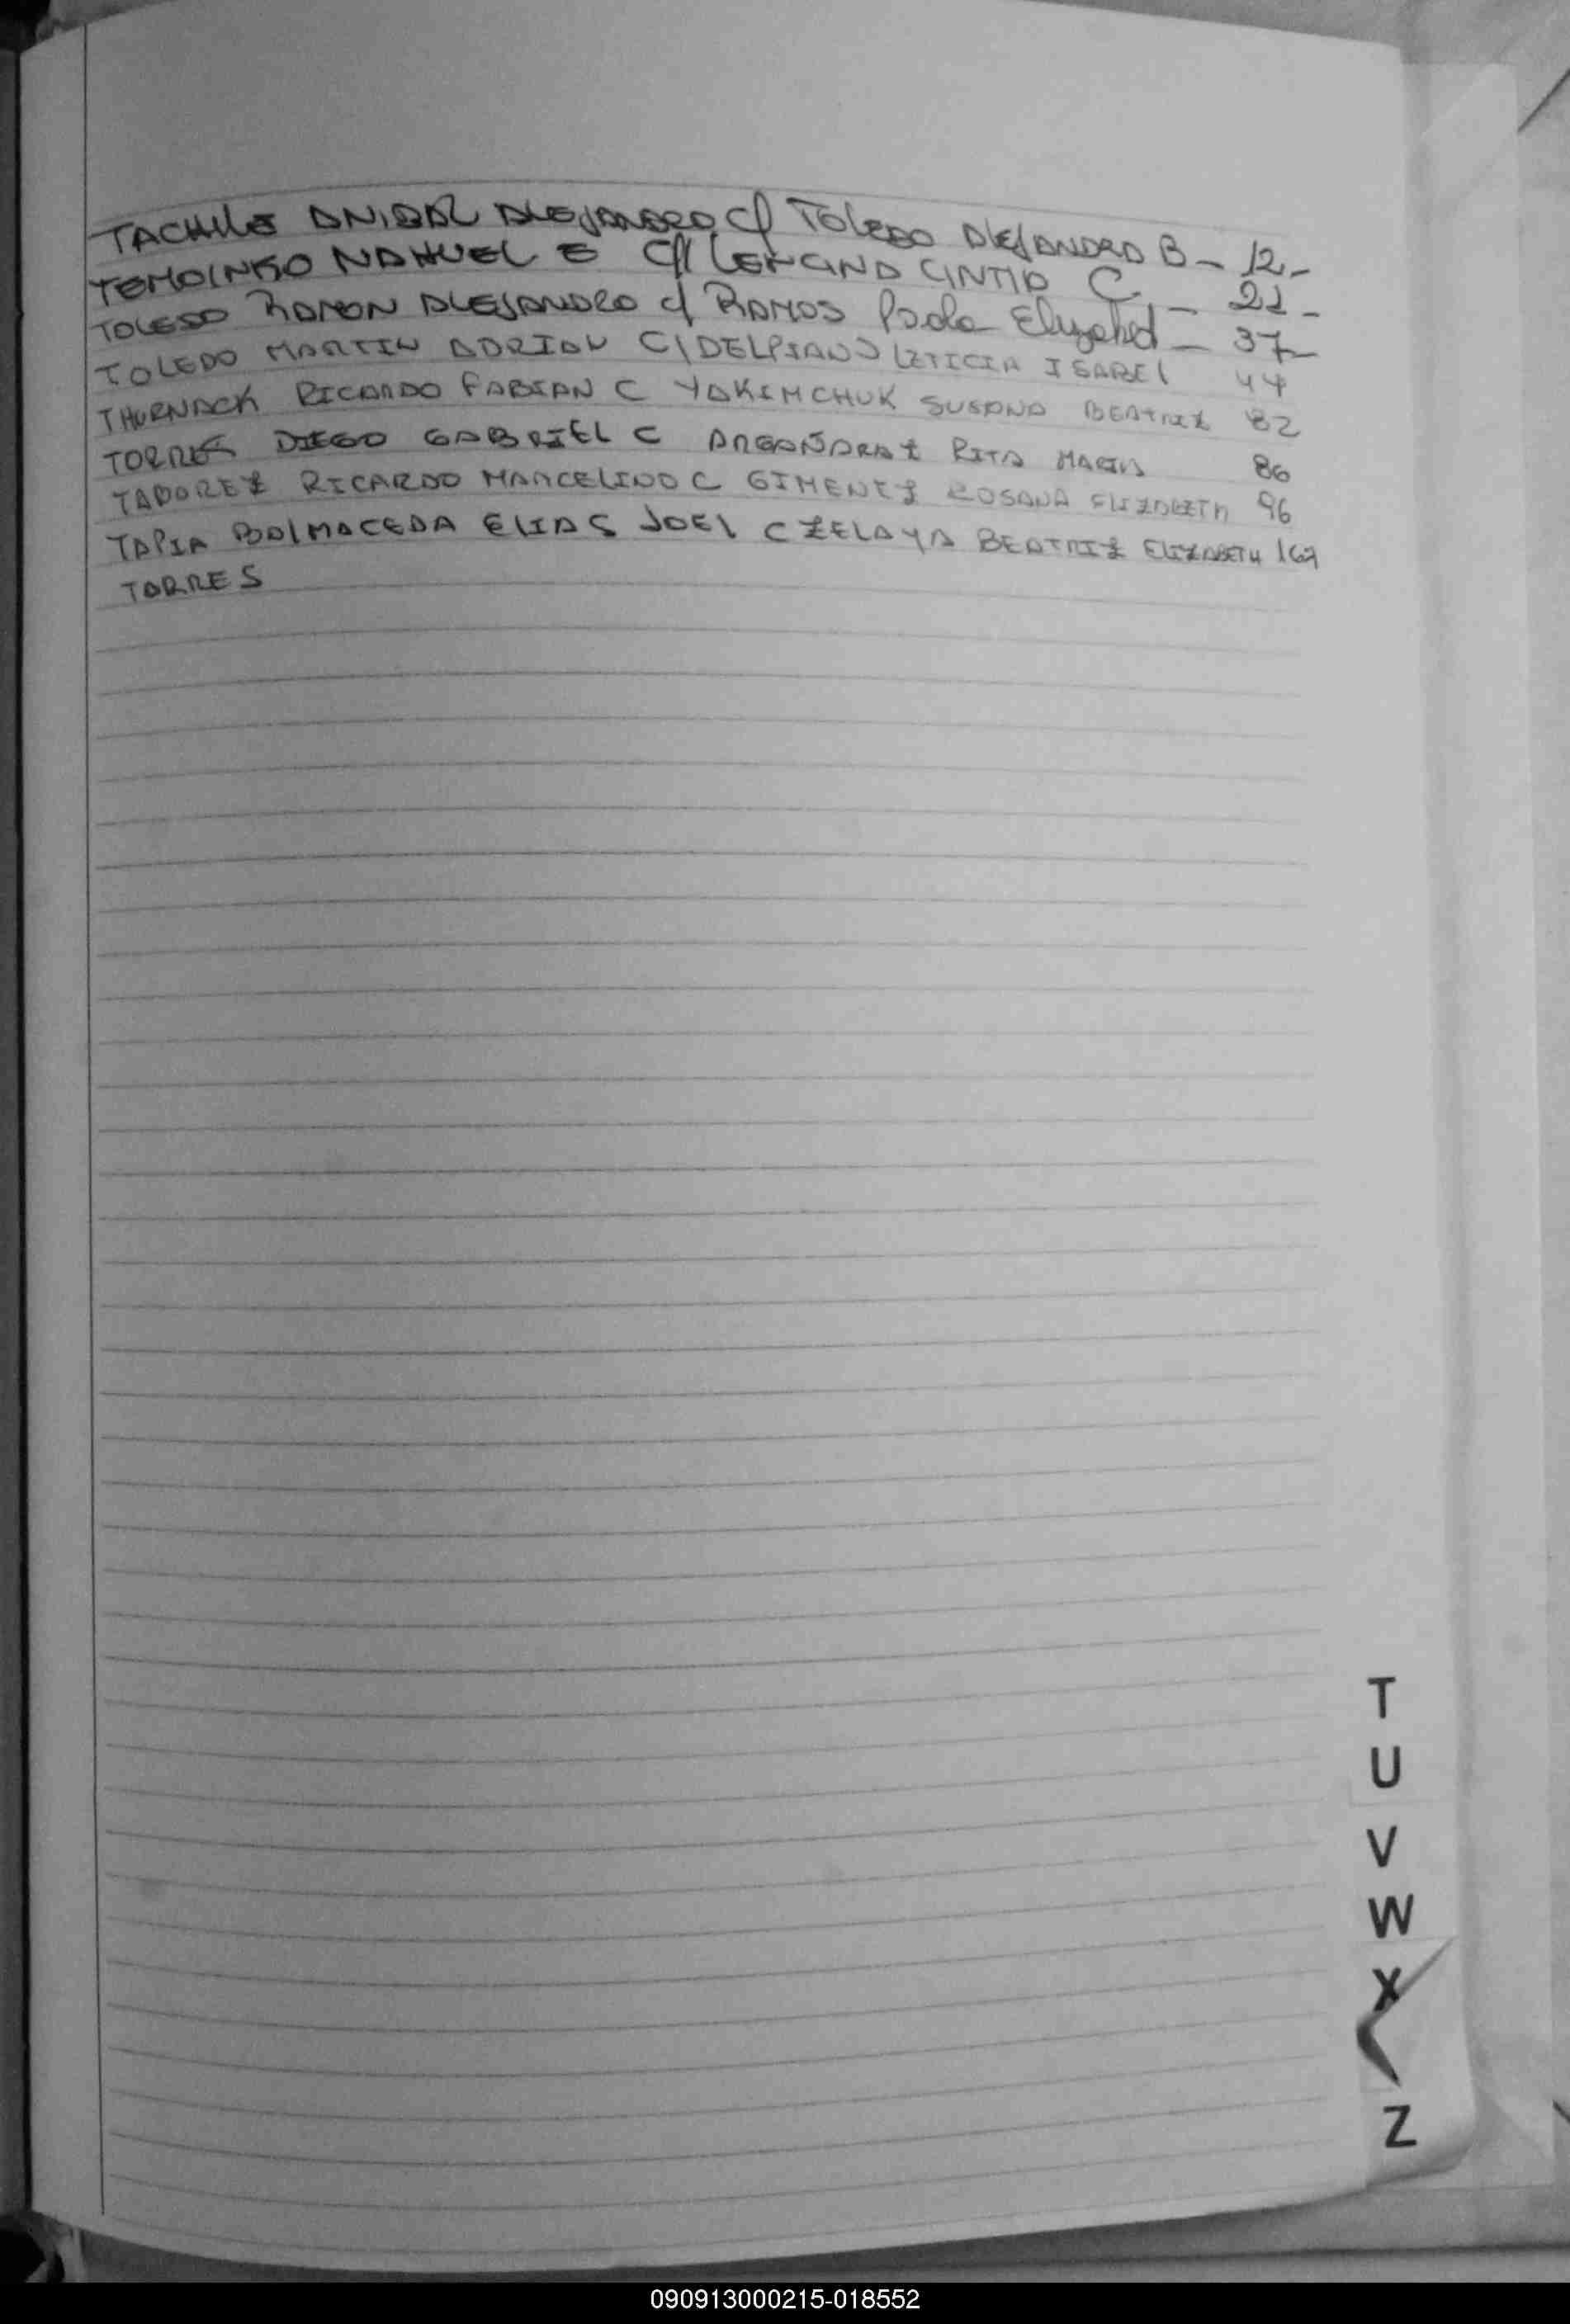 TACHILE ANIBAL ALEJANDRO C/ TOLEDO ALEJANDRA B - 12 -
NAHUEL E C/ CINTIA C. - 21 -
TOLEDO RAMON ALEJANDRO C/ RAMOS Paola Elizabed - 37 -
TOLEDO MARTIN ADRIAN C/ DELPIANO LETICIA ISABEL 44
THURNACK RICARDO FABIAN C YAKIMCHUK SUSANA BEATRIZ 82
TORRES DIEGO GABRIEL C ARGAÑARAZ RITA MARIA 86
TABOREZ RICARDO MARCELINO C GIMENEZ ROSANA ELIZABETH 96
TAPIA BALMACEDA ELIAS JOEL C ZELAYA BEATRIZ ELIZABETH 167
TORRES
T
U
V
W
X
Z
090913000215-018552